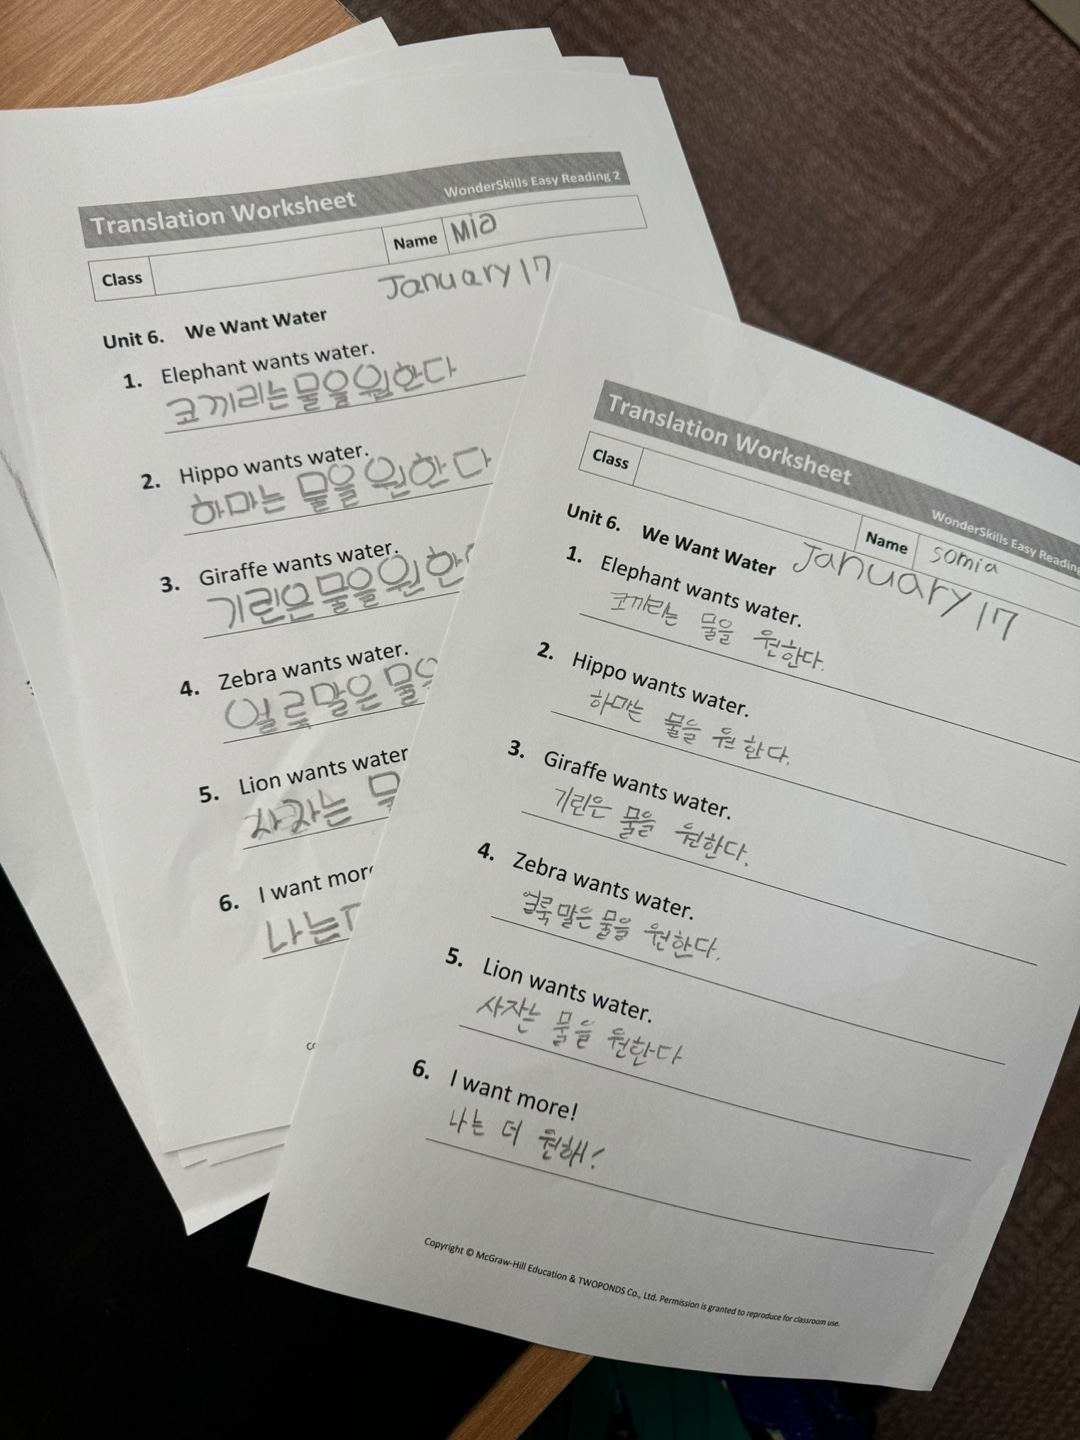 Translation Worksheet WonderSkills Easy Reading 2
Class Name Mia
January 17
Unit 6. We Want Water
1. Elephant wants water.
코끼리는 물을 원한다
2. Hippo wants water.
하마는 물을 원한다
3. Giraffe wants water.
기린은 물을 원한
4. Zebra wants water.
얼룩말은 물을
5. Lion wants water
사자는
6. I want more
나는
Translation Worksheet WonderSkills Easy Reading
Class Name somia
January 17
Unit 6. We Want Water
1. Elephant wants water.
코끼리는 물을 원한다.
2. Hippo wants water.
하마는 물을 원한다.
3. Giraffe wants water.
기린은 물을 원한다.
4. Zebra wants water.
얼룩말은 물을 원한다.
5. Lion wants water.
사자는 물을 원한다
6. I want more!
나는 더 원해!
Copyright © McGraw-Hill Education & TWOPONDS Co., Ltd. Permission is granted to reproduce for classroom use.